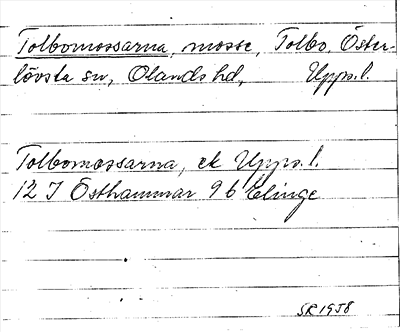 Tolbomossarna, mosse, Tolbo, Öster-
lövsta sn, Olands hd, Upps.l.
Tolbomossarna, ek Upps.l.
12 I Östhammar 9 b Elinge
SR 1958